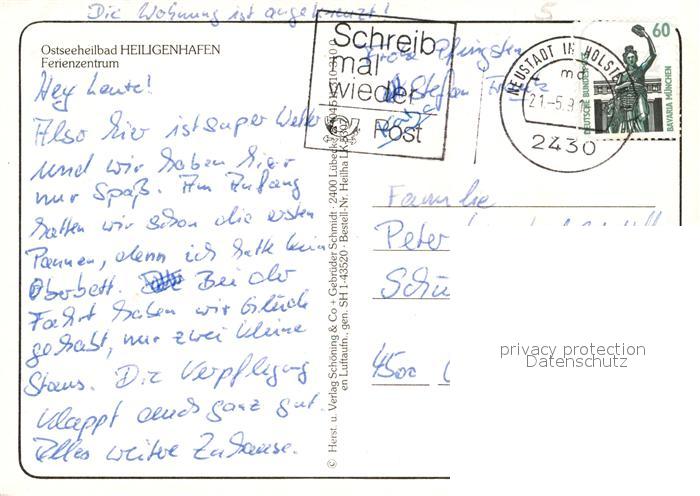 Die Wohnung ist angeheizt!
Ostseeheilbad HEILIGENHAFEN
Ferienzentrum
Hey Leute!
Also hier ist super Wetter
und wir haben hier
nur Spaß. Am Anfang
hatten wir schon die ersten
Pannen, denn ich hatte kein
Oberbett. Bei der
Fahrt haben wir Glück
gehabt, nur zwei kleine
Staus. Die Verpflegung
klappt auch ganz gut.
Alles weitere Zuhause.
© Herst. u. Verlag Schöning & Co + Gebrüder Schmidt · 2400 Lübeck
en Luftaufn. gen. SH 1-43520 · Bestell-Nr. Heilha
Schreib
mal
wieder
Post
Pfingsten
Stefan
NEUSTADT IN HOLSTEIN
21.-5.9
2430
60
DEUTSCHE BUNDESPOST
BAVARIA MÜNCHEN
Familie
Peter
Schü
4500
privacy protection
Datenschutz